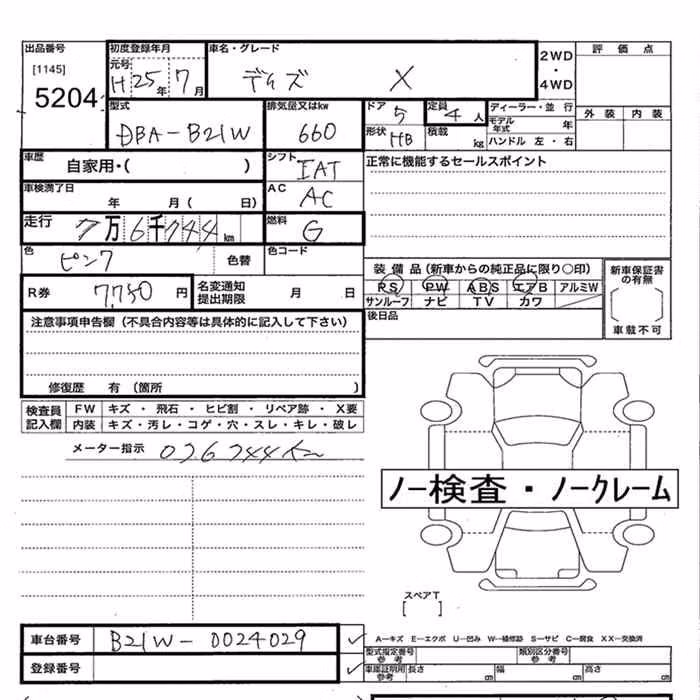 出品番号 初度登録年月 車名・グレード 2WD・4WD 評価点
[1145] 元号 H 25年 7月 デイズ X
5204
型式 排気量又はkw ドア 5 定員 4人 ディーラー・並行 外装 内装
DBA-B21W 660 形状 HB 積載 kg モデル年式 年
ハンドル 左・右
車歴 自家用・( ) シフト IAT 正常に機能するセールスポイント
車検満了日 年 月( 日) AC AC
走行 7万6千744km 燃料 G
色 ピンク 色替 色コード
装備品(新車からの純正品に限り○印) 新車保証書の有無
R券 7,750円 名変通知提出期限 月 日 PS PW ABS エアB アルミW
サンルーフ ナビ TV カワ 車載不可
注意事項申告欄(不具合内容等は具体的に記入して下さい) 後日品
修復歴 有(箇所 )
検査員記入欄 FW キズ・飛石・ヒビ割・リペア跡・X要
内装 キズ・汚レ・コゲ・穴・スレ・キレ・破レ
メーター指示 076744km
ノー検査・ノークレーム
スペアT
[ ]
車台番号 B21W-0024029 A―キズ E―エクボ U―凹み W―補修跡 S―サビ C―腐食 XX―交換済
登録番号 型式指定番号 参考 類別区分番号 参考
車庫証明用 参考 長さ cm 幅 cm 高さ cm